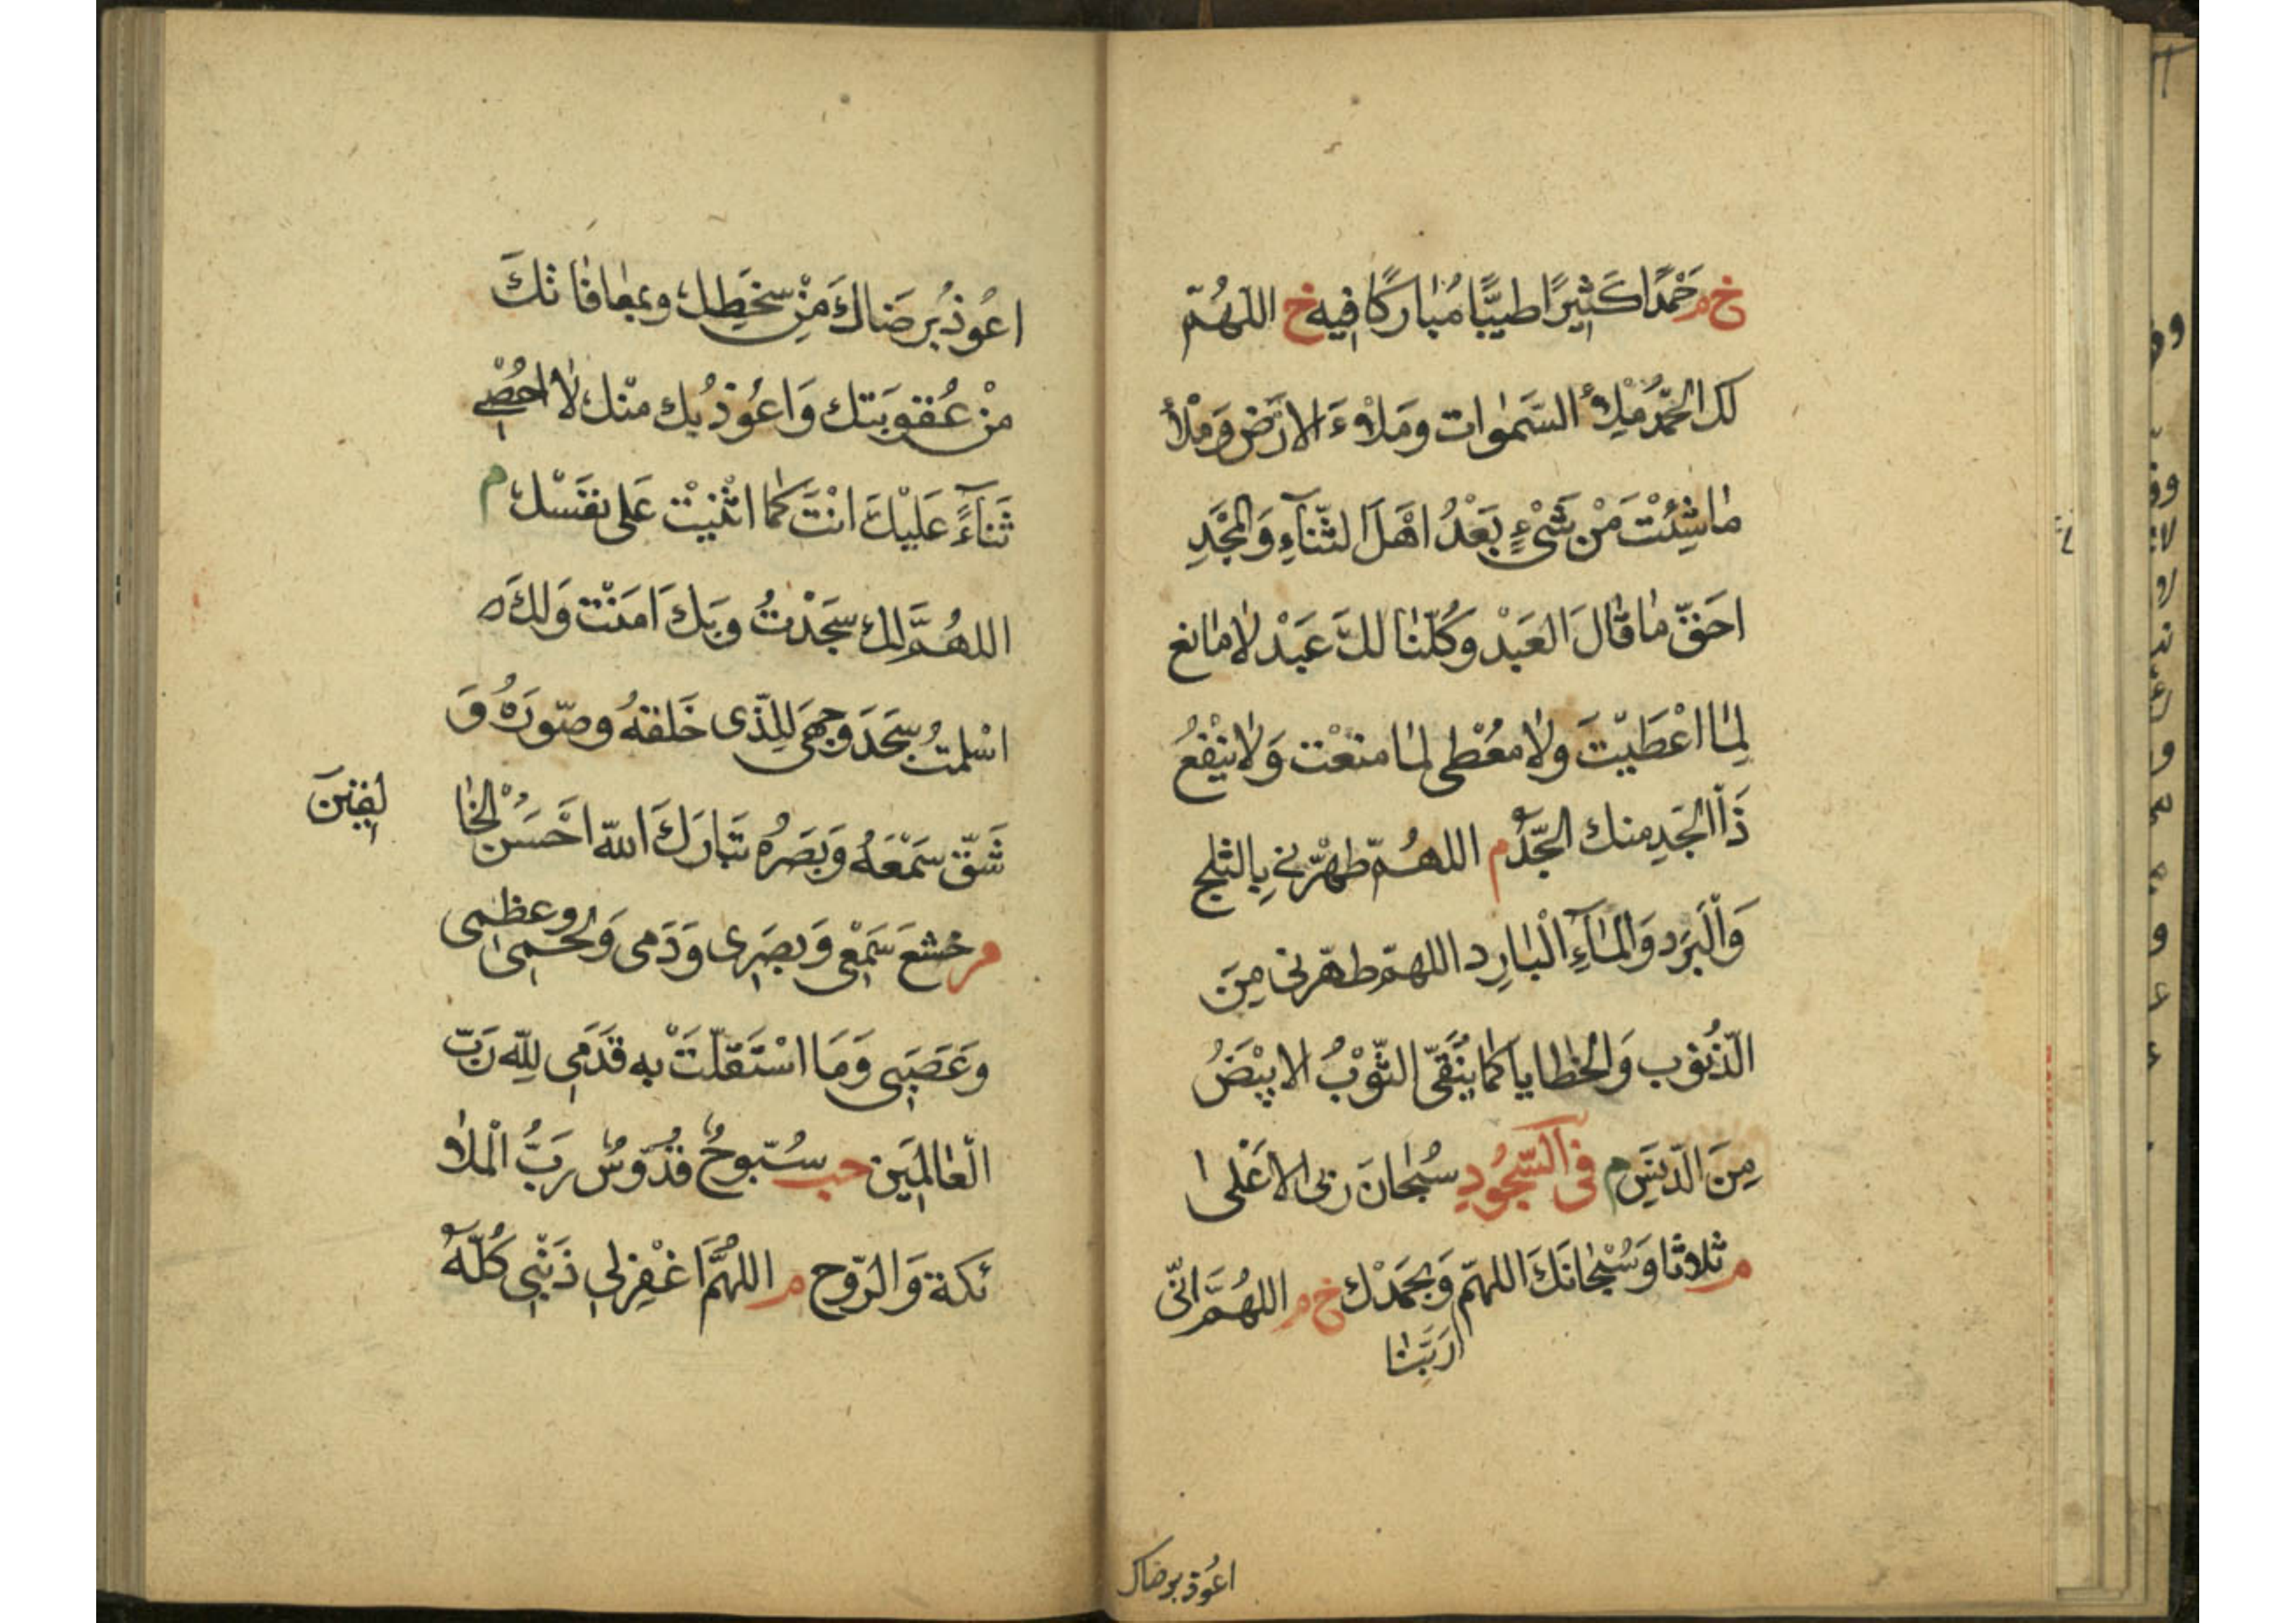 خ م حَمْدًا كَثِيرًا طيِّبًا مُبَارَكًا فِيهِ خ اللهُمّ
لك الحَمْدُ مِلْأَ السَّمٰوَات وَمَلْاءَ الارَض وَمِلْأ
مَاشِئتْ مَنْ شَىْءٍ بَعْدُ اهْلَ الثَّنَآءِ وَالمجْدِ
احَقّ مَا قَالَ العَبْد وَكُلّنَا لكَ عَبْد لامَانع
لِمَا اعْطَيْتَ وَلا مُعْطى لمَا منَعْت وَلا يَنْفعُ
ذَا الجَدِ منك الجَدُّ م اللهُمّ طهّرْنِى بِالثلج
وَالْبَرَد وَالمَآءِ الْبَارِد اللهمّ طهّرنى مِنَ
الذّنوُب وَالخطايا كما يُنَقّى الثّوْبُ الابيْضُ
مِنَ الدّنَسِ م فى السّجُودِ سُبْحَانَ ربى الاعْلى
م ثلاثا وَسُبْحَانَكَ اللهمّ وَبحَمْدْك خ م اللهُمَّ انّى
رَبَّنَا
اعُوذ برضاك
اعُوذُ برَضَاكَ مِنْ سخَطِك وبمعَافَاتكَ
منْ عُقوبَتك وَاعُوذُ بك منْك لا احْصِى
ثَنَآءً عَلَيْكَ انْتَ كما اثْنَيْت عَلى نفَسْك م
اللهُمَّ لك سجَدْتُ وبَك اَمَنْت وَلكَ
اسْلمتُ سجَدَ وَجهىَ لِلذّى خَلقهُ وصَوّرَهُ وَ
شَقّ سَمْعَهُ وَبَصَرُه تبَارَكَ اللهّ احْسَنُ الخا
لِقِينَ
م خشعَ سَمْعِى وَبصَرِى وَدَمى وَلحْمِى وعظمى
وَعَصَبِى وَمَا اسْتَقَلّتَ به قَدَمِى لِلّه رَبّ
الْعَالمِيَن حب سُبّوحٌ قدّوسٌ رَبُّ الْملا
ئكة وَالرّوح م اللهُمَّ اغْفِرْلِى ذَنْبِى كُلّهُ